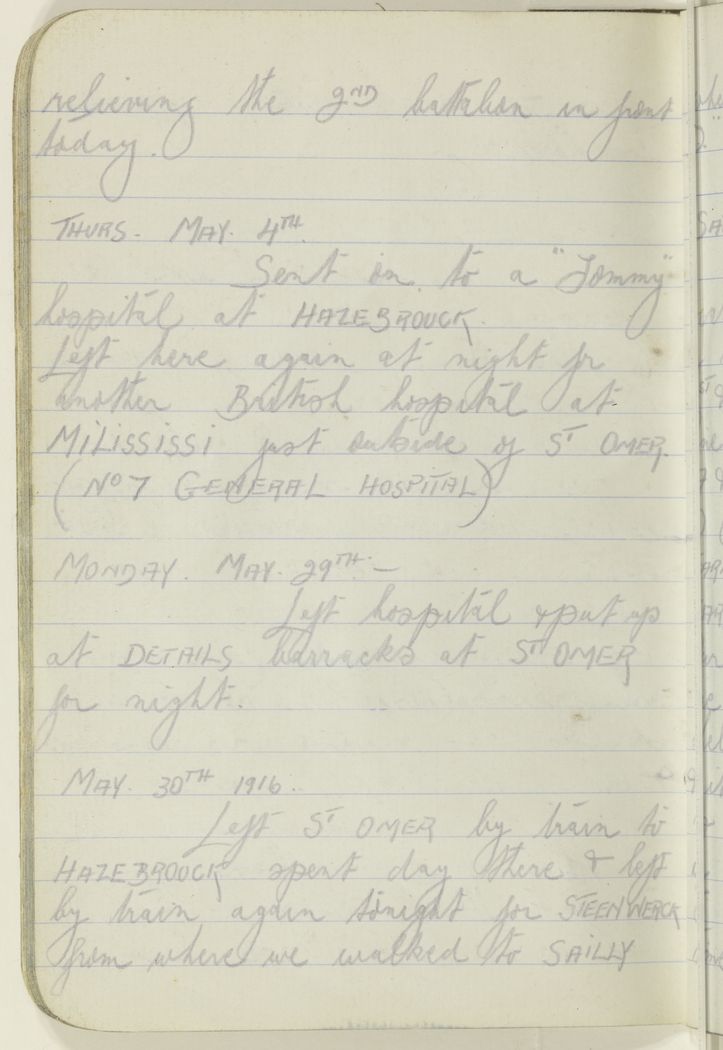 relieving the 2ND battalion in front
today.
THURS. MAY. 4TH.
Sent on to a "Tommy"
hospital at HAZEBROUCK.
Left here again at night for
another British hospital at
MILISSISSI just outside of ST OMER.
(No 7 GENERAL HOSPITAL)
MONDAY. MAY. 29TH. —
Left hospital & put up
at DETAILS barracks at ST OMER
for night.
MAY. 30TH 1916.
Left ST OMER by train to
HAZEBROUCK spent day there & left
by train again tonight for STEENWERCK
from where we walked to SAILLY